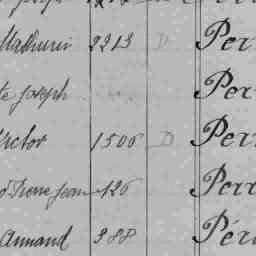 Mathurin 2213 D Per
te Joseph Per
Victor 1506 D Per
Pierre Jean 126 Per
Armand 388 Pér